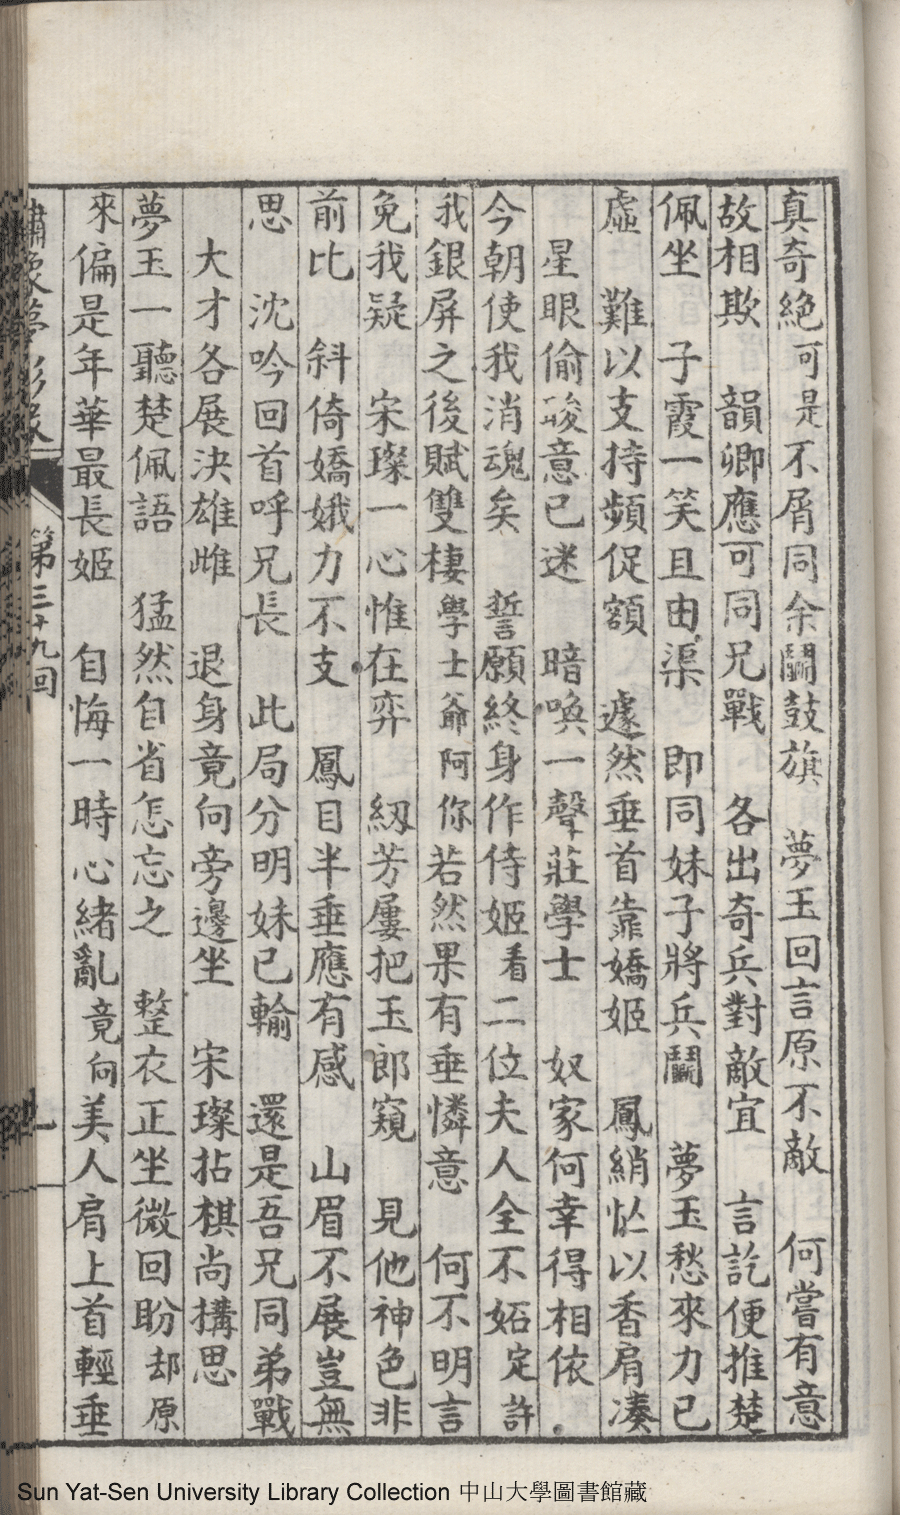 真奇絕可是不屑同余鬭鼓旗　夢玉回言原不敵　何嘗有意
故相欺　韻卿應可同兄戰　各出奇兵對敵宜　言訖便推楚
佩坐　子霞一笑且由渠　即同妹子將兵鬭　夢玉愁來力已
虛　難以支持頻促額　遽然垂首靠嬌姬　鳳綃忙以香肩湊
星眼偷睃意已迷　暗喚一聲莊學士　奴家何幸得相依
今朝使我消魂矣　誓願終身作侍姬看二位夫人全不妬定許
我銀屏之後賦雙棲學士爺阿你若然果有垂憐意　何不明言
免我疑　宋璨一心惟在弈　紉芳屢把玉郎窺　見他神色非
前比　斜倚嬌娥力不支　鳳目半垂應有感　山眉不展豈無
思　沈吟回首呼兄長　此局分明妹已輸　還是吾兄同弟戰
大才各展決雄雌　退身竟向旁邊坐　宋璨拈棋尚搆思
夢玉一聽楚佩語　猛然自省怎忘之　整衣正坐微回盼却原
來偏是年華最長姬　自悔一時心緒亂竟向美人肩上首輕垂
繡像夢影緣　第三十九回
Sun Yat-Sen University Library Collection 中山大學圖書館藏